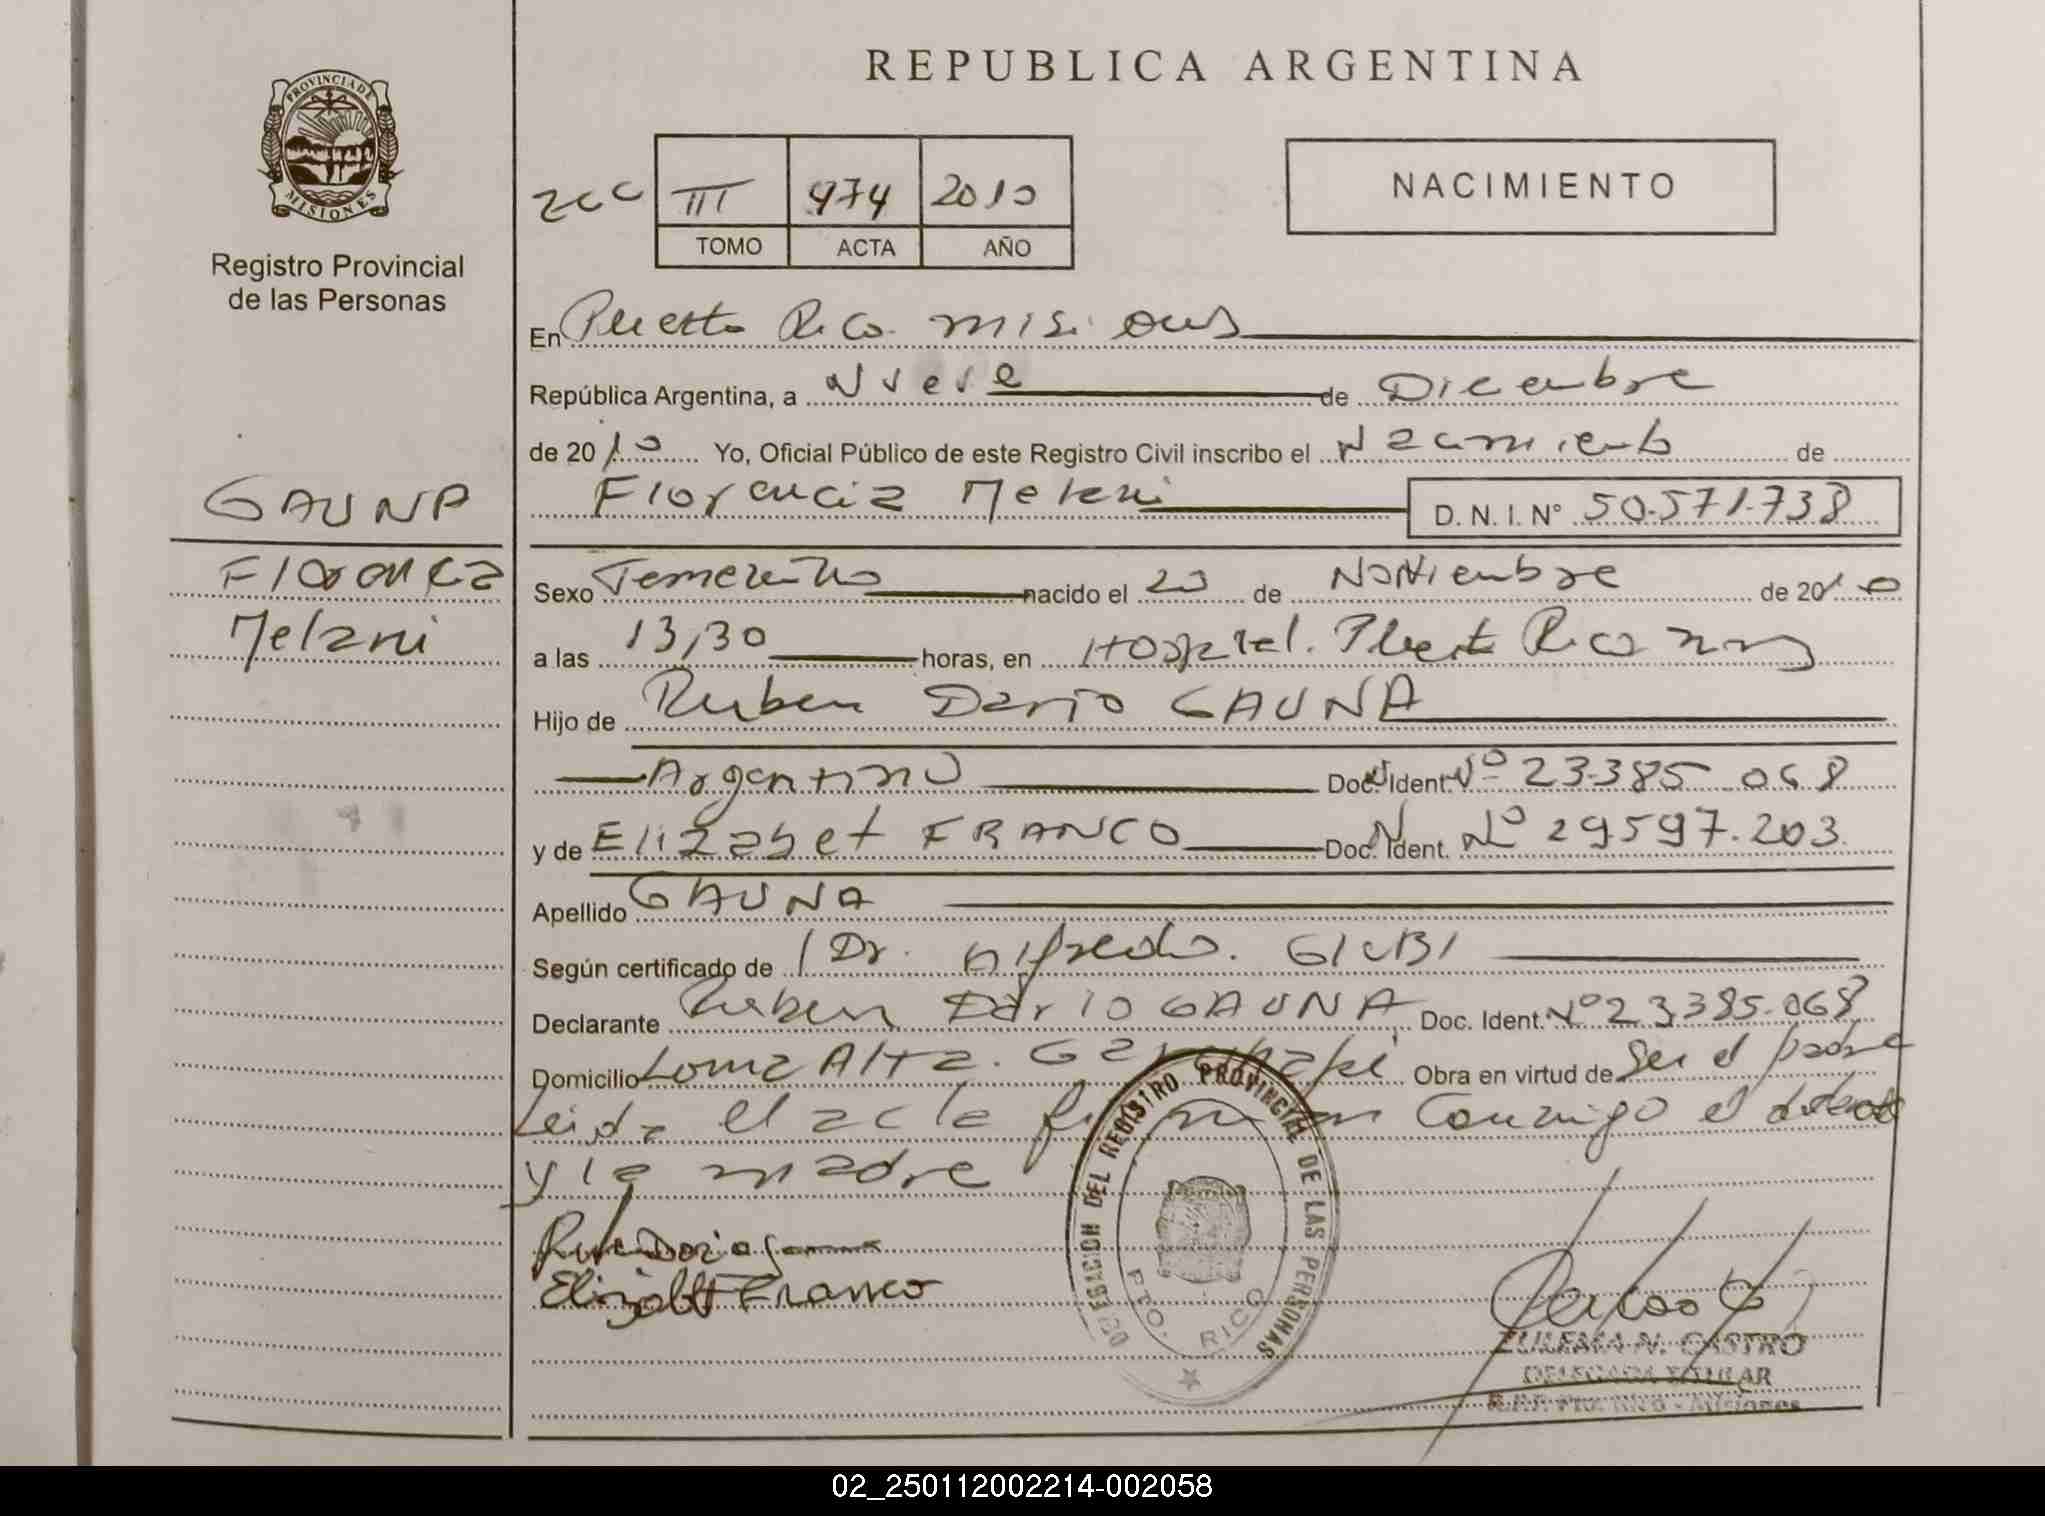 REPUBLICA ARGENTINA
PROVINCIA DE
MISIONES
Registro Provincial
de las Personas
III 974 2010
TOMO ACTA AÑO
NACIMIENTO
En Puerto Rico Misiones
República Argentina, a Nueve de Diciembre
de 2010 Yo, Oficial Público de este Registro Civil inscribo el Nacimiento de
Florencia Melani D. N. I. Nº 50.571.738
GAUNA
Florencia
Melani
Sexo Femenino nacido el 20 de Noviembre de 2010
a las 13,30 horas, en Hospital. Puerto Rico
Hijo de Ruben Dario GAUNA
Argentino Doc. Ident. Nº 23.385.068
y de Elizabet FRANCO Doc. Ident. Nº 29597.203
Apellido GAUNA
Según certificado de Dr. Alfredo.
Declarante Ruben Dario GAUNA Doc. Ident. Nº 23.385.068
Domicilio Loma Alta. Garuhape Obra en virtud de ser el padre
Leida el acta firman conmigo el
y la madre
Elizabet Franco
DEL REGISTRO PROVINCIAL DE LAS PERSONAS
PTO. RICO
ZULEMA N. CASTRO
DELEGADA TITULAR
R.P.P. Pto. Rico - Misiones
02_250112002214-002058